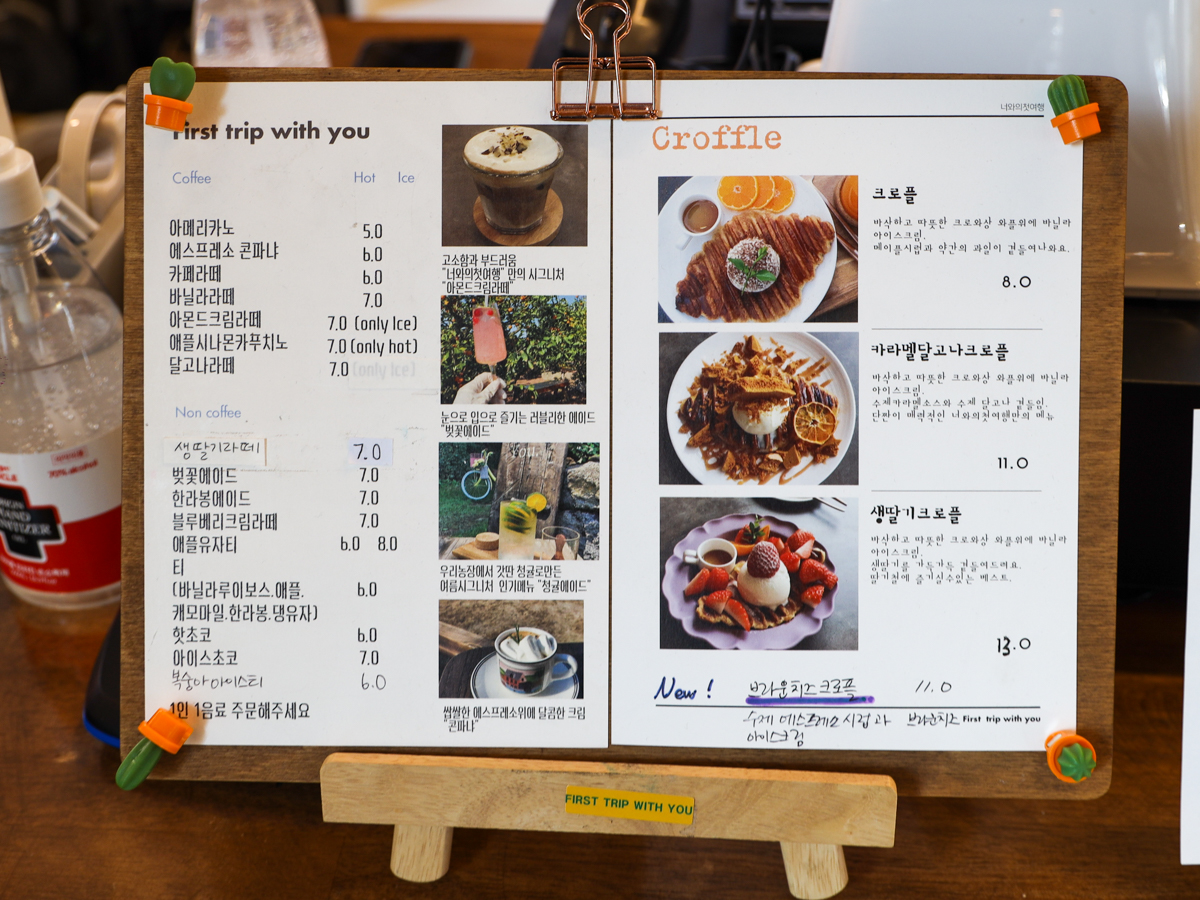 First trip with you
Coffee Hot Ice
아메리카노 5.0
에스프레소 콘파냐 6.0
카페라떼 6.0
바닐라라떼 7.0
아몬드크림라떼 7.0 (only Ice)
애플시나몬카푸치노 7.0 (only hot)
달고나라떼 7.0 (only Ice)
Non coffee
생딸기라떼 7.0
벚꽃에이드 7.0
한라봉에이드 7.0
블루베리크림라떼 7.0
애플유자티 6.0 8.0
티
(바닐라루이보스.애플. 6.0
캐모마일.한라봉.댕유자)
핫초코 6.0
아이스초코 7.0
복숭아아이스티 6.0
1인 1음료 주문해주세요
고소함과 부드러움
"너와의첫여행" 만의 시그니처
"아몬드크림라떼"
눈으로 입으로 즐기는 러블리한 에이드
"벚꽃에이드"
우리농장에서 갓딴 청귤로만든
여름시그니처 인기메뉴 "청귤에이드"
쌉쌀한 에스프레소위에 달콤한 크림
"콘파냐"
너와의첫여행
Croffle
크로플
바삭하고 따뜻한 크로와상 와플위에 바닐라
아이스크림.
메이플시럽과 약간의 과일이 곁들여나와요.
8.0
카라멜달고나크로플
바삭하고 따뜻한 크로와상 와플위에 바닐라
아이스크림.
수제카라멜소스와 수제 달고나 곁들임.
단짠이 매력적인 너와의첫여행만의 메뉴
11.0
생딸기크로플
바삭하고 따뜻한 크로와상 와플위에 바닐라
아이스크림.
생딸기를 가득가득 곁들여드려요.
딸기철에 즐기실수있는 베스트.
13.0
New! 브라운치즈크로플 11.0
수제 에스프레소 시럽과 브라운치즈
아이스크림
First trip with you
FIRST TRIP WITH YOU